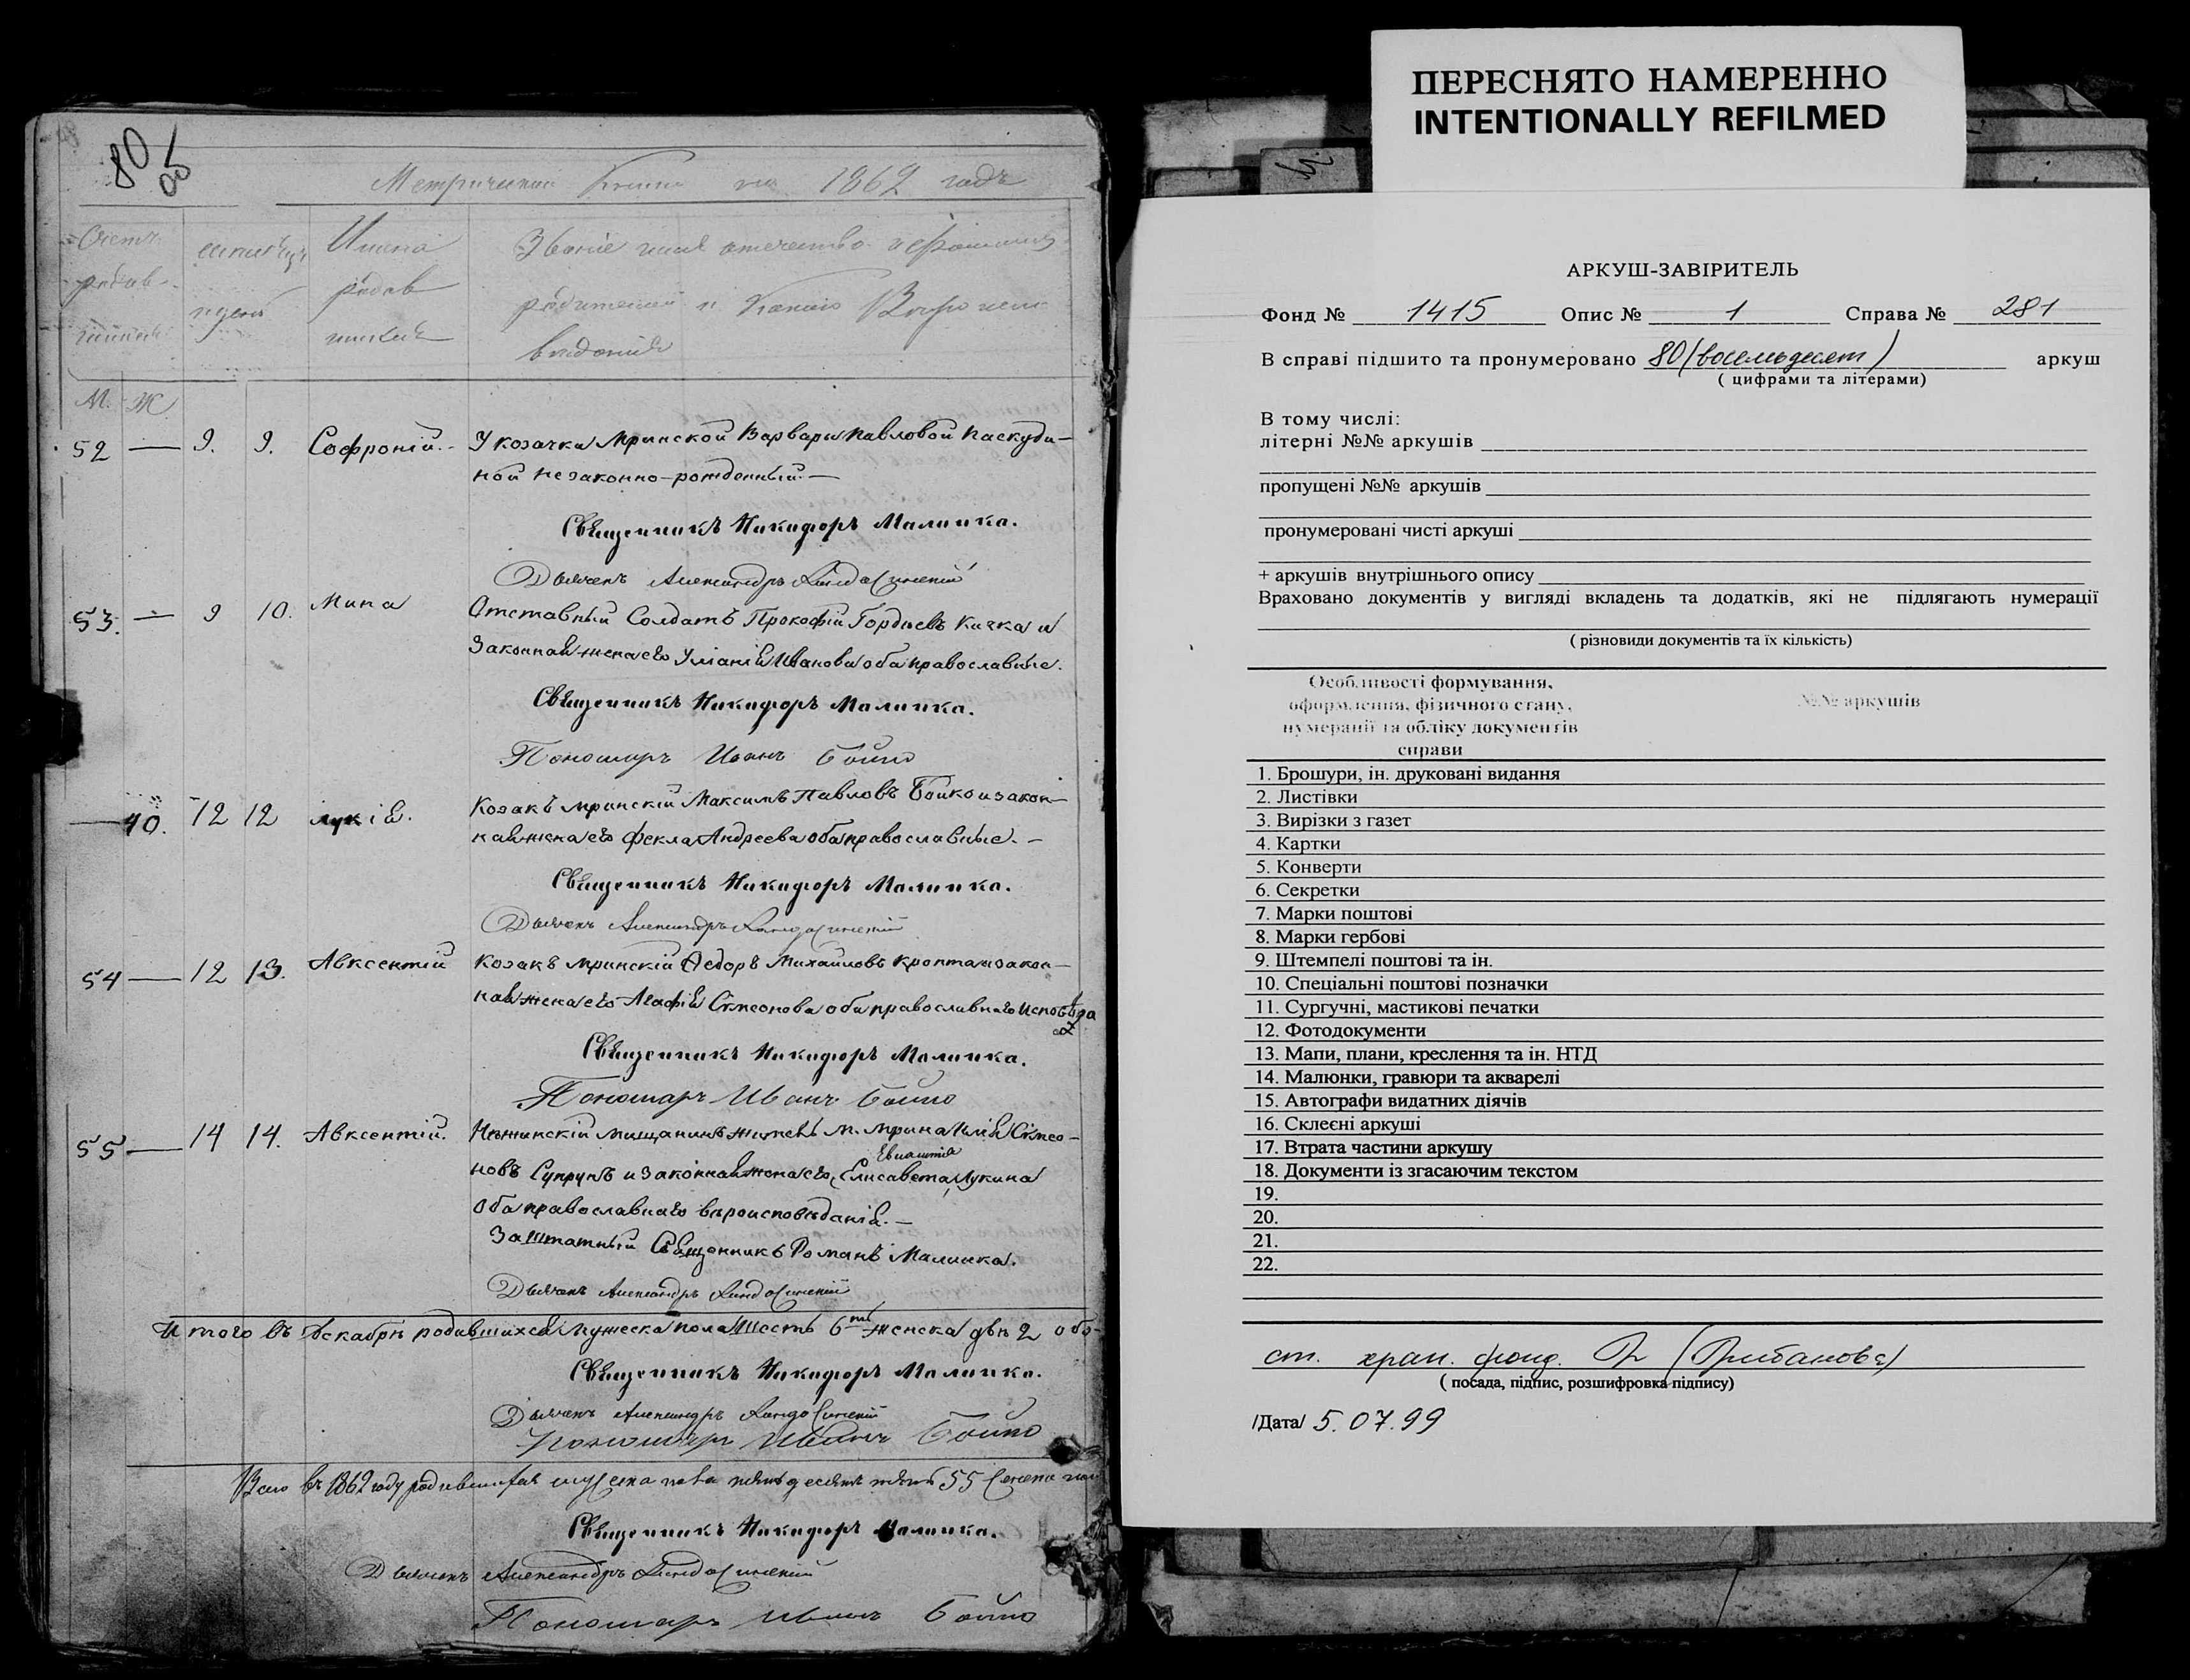 80
об
Метрическая Книга на 1862 годъ
Счетъ
родив-
шихся
мѣсяцъ
и день
Имена
родив
шихся
Званіе имя отечество и фамилія
родителей и какого Вѣроиспо
вѣданія
М. Ж.
52 — 9. 9. Софроній. У козачки Мринской Варвары Павловой Паскуди-
ной незаконно-рожденный. —
Священникъ Никифоръ Малинка.
Дьячекъ Александръ
53. — 9 10. Мина Отставный Солдатъ Прокофій Гордіевъ Кичка и
Законная жена его Уліанія Иванова оба православные.
Священникъ Никифоръ Малинка.
Пономарь Иванъ Бойко
— 40. 12 12 Лукія. Козакъ Мринскій Максимъ Павловъ Бойко и закон-
ная жена его Фекла Андреева оба православные. —
Священникъ Никифоръ Малинка.
Дьячекъ Александръ
54 — 12 13. Авксентій Козакъ Мринскій Ѳедоръ Михайловъ Кропта и закон-
ная жена его Агафія Сѵмеонова оба православнаго исповѣда
Священникъ Никифоръ Малинка.
Пономарь Иванъ Бойко
55 — 14 14. Авксентій. Нѣжинскій мищанинъ житель м. Мрина Илія Сѵмео-
новъ Супрунъ и законная жена его, Елисавета Лукина
оба православнаго вѣроисповѣданія. —
Заштатный Священникъ Романъ Малинка.
Дьячекъ Александръ
Итого въ декабрѣ родившихся мужеска пола шесть 6 женска двѣ 2 обо-
Священникъ Никифоръ Малинка.
Дьячекъ Александръ
Пономарь Иванъ Бойко
Всего въ 1862 году родившихся мужеска пола пятьдесятъ пять 55
Священникъ Никифоръ Малинка.
Дьячекъ Александръ
Пономарь Иванъ Бойко
ПЕРЕСНЯТО НАМЕРЕННО
INTENTIONALLY REFILMED
АРКУШ-ЗАВІРИТЕЛЬ
Фонд № 1415 Опис № 1 Справа № 281
В справі підшито та пронумеровано 80 (восемьдесят) аркуш
( цифрами та літерами)
В тому числі:
літерні №№ аркушів
пропущені №№ аркушів
пронумеровані чисті аркуші
+ аркушів внутрішнього опису
Враховано документів у вигляді вкладень та додатків, які не підлягають нумерації
( різновиди документів та їх кількість)
Особливості формування,
оформлення, фізичного стану,
нумерації та обліку документів
справи
№№ аркушів
1. Брошури, ін. друковані видання
2. Листівки
3. Вирізки з газет
4. Картки
5. Конверти
6. Секретки
7. Марки поштові
8. Марки гербові
9. Штемпелі поштові та ін.
10. Спеціальні поштові позначки
11. Сургучні, мастикові печатки
12. Фотодокументи
13. Мапи, плани, креслення та ін. НТД
14. Малюнки, гравюри та акварелі
15. Автографи видатних діячів
16. Склеєні аркуші
17. Втрата частини аркушу
18. Документи із згасаючим текстом
19.
20.
21.
22.
ст. хран. фонд. (Грибанова)
( посада, підпис, розшифровка підпису)
/Дата/ 5.07.99